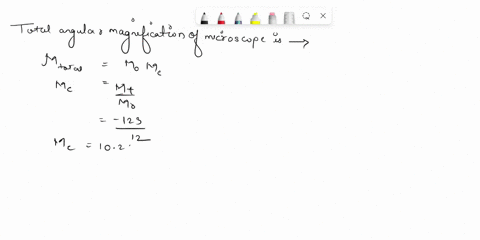 Total angular magnification of microscope is →
M_total = M_o M_e
M_e = M_t / M_o
= -123 / 12
M_e = 10.2.